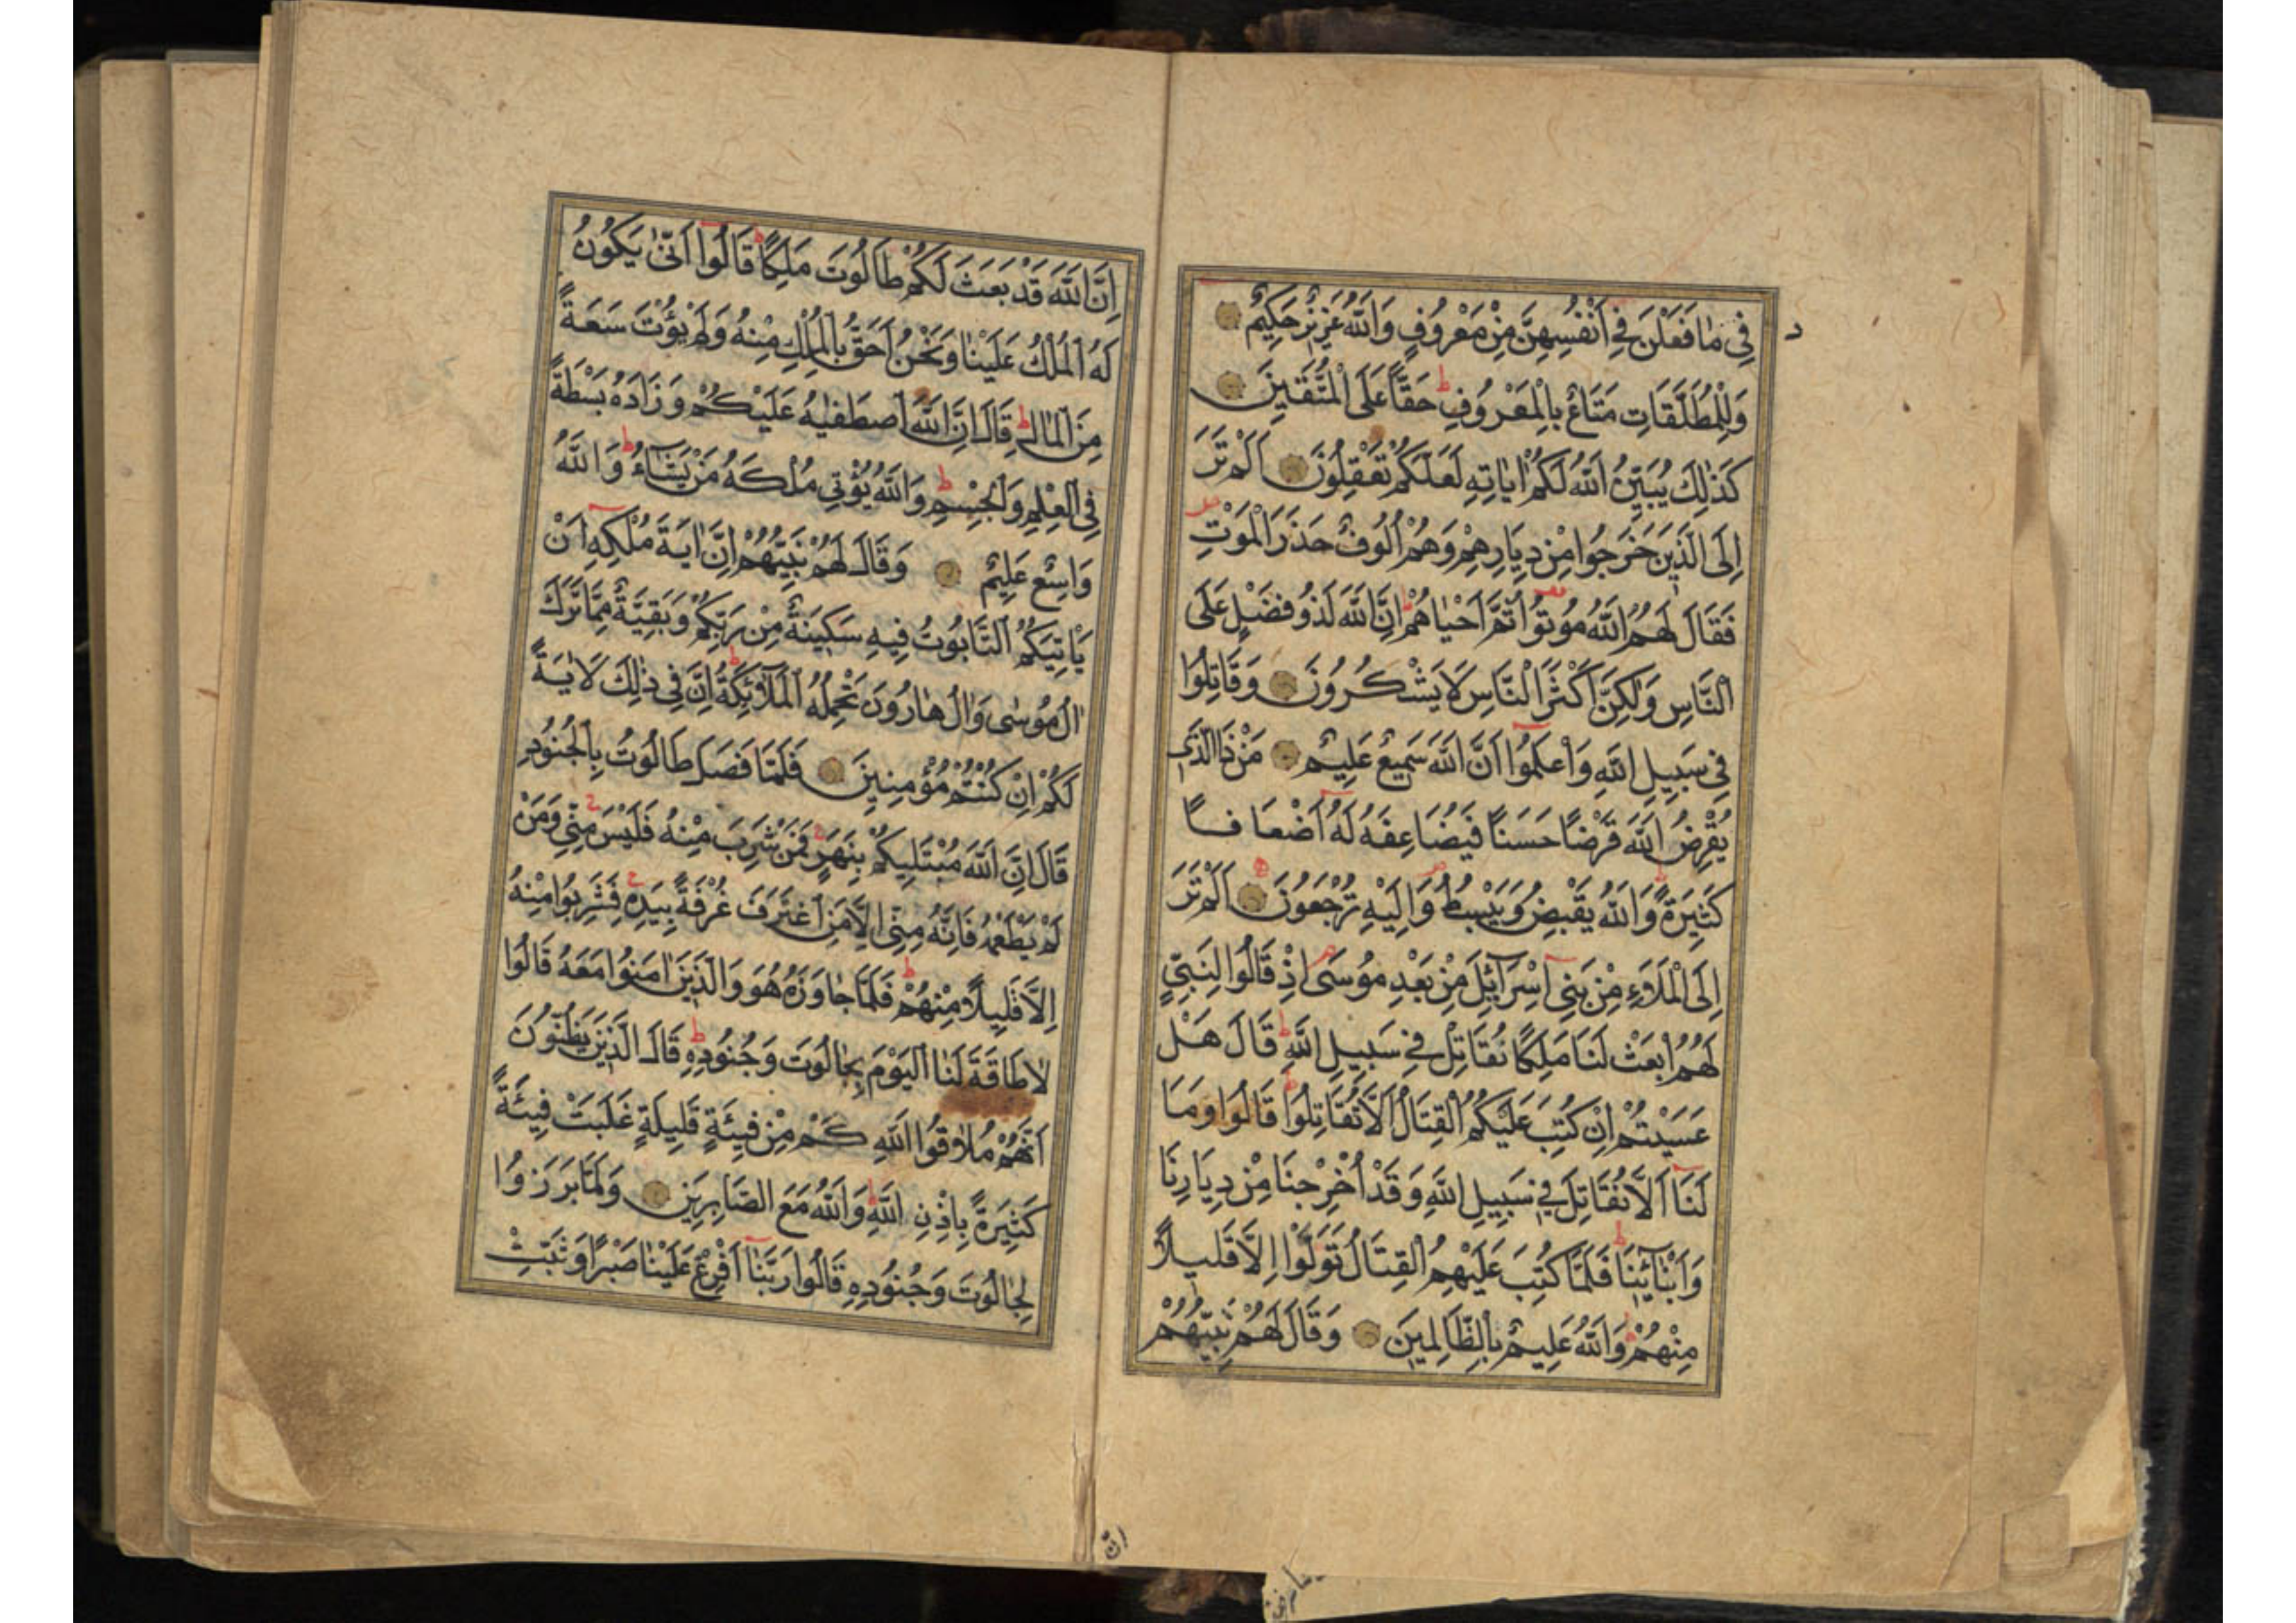 فِى مٰا فَعَلْنَ فِى اَنْفُسِهِنَّ مِنْ مَعْرُوفٍ وَاللّٰهُ عَزِيزٌ حَكِيمٌ
وَلِلْمُطَلَّقَاتِ مَتَاعٌ بِالْمَعْرُوفِ ط حَقًّا عَلَى الْمُتَّقِينَ
كَذٰلِكَ يُبَيِّنُ اللّٰهُ لَكُمْ اٰيَاتِهِ لَعَلَّكُمْ تَعْقِلُونَ اَلَمْ تَرَ
اِلَى الَّذِينَ خَرَجُوا مِنْ دِيَارِهِمْ وَهُمْ اُلُوفٌ حَذَرَ الْمَوْتِ
فَقَالَ لَهُمُ اللّٰهُ مُوتُوا ثُمَّ اَحْيٰاهُمْ اِنَّ اللّٰهَ لَذُو فَضْلٍ عَلَى
النَّاسِ وَلٰكِنَّ اَكْثَرَ النَّاسِ لَا يَشْكُرُونَ وَقَاتِلُوا
فِى سَبِيلِ اللّٰهِ وَاعْلَمُوا اَنَّ اللّٰهَ سَمِيعٌ عَلِيمٌ مَنْ ذَا الَّذِى
يُقْرِضُ اللّٰهَ قَرْضًا حَسَنًا فَيُضَاعِفَهُ لَهُ اَضْعَافًا
كَثِيرَةً وَاللّٰهُ يَقْبِضُ وَيَبْسُطُ وَاِلَيْهِ تُرْجَعُونَ اَلَمْ تَرَ
اِلَى الْمَلَاءِ مِنْ بَنِى اِسْرَآئِلَ مِنْ بَعْدِ مُوسَى اِذْ قَالُوا لِنَبِىٍّ
لَهُمُ ابْعَثْ لَنَا مَلِكًا نُقَاتِلْ فِى سَبِيلِ اللّٰهِ ط قَالَ هَلْ
عَسَيْتُمْ اِنْ كُتِبَ عَلَيْكُمُ الْقِتَالُ اَلَّا تُقَاتِلُوا قَالُوا وَمَا
لَنَا اَلَّا نُقَاتِلَ فِى سَبِيلِ اللّٰهِ وَقَدْ اُخْرِجْنَا مِنْ دِيَارِنَا
وَاَبْنَآئِنَا ط فَلَمَّا كُتِبَ عَلَيْهِمُ الْقِتَالُ تَوَلَّوْا اِلَّا قَلِيلًا
مِنْهُمْ وَاللّٰهُ عَلِيمٌ بِالظَّالِمِينَ وَقَالَ لَهُمْ نَبِيُّهُمْ
انّ
اِنَّ اللّٰهَ قَدْ بَعَثَ لَكُمْ طَالُوتَ مَلِكًا ط قَالُوا اَنّٰى يَكُونُ
لَهُ الْمُلْكُ عَلَيْنٰا وَنَحْنُ اَحَقُّ بِالْمُلْكِ مِنْهُ وَلَمْ يُؤْتَ سَعَةً
مِنَ الْمَالِ ط قَالَ اِنَّ اللّٰهَ اصْطَفٰيهُ عَلَيْكُمْ وَزَادَهُ بَسْطَةً
فِى الْعِلْمِ وَالْجِسْمِ ط وَاللّٰهُ يُؤْتِى مُلْكَهُ مَنْ يَشَآءُ ط وَاللّٰهُ
وَاسِعٌ عَلِيمٌ وَقَالَ لَهُمْ نَبِيُّهُمْ اِنَّ اٰيَةَ مُلْكِهِ اَنْ
يَاْتِيَكُمُ التَّابُوتُ فِيهِ سَكِينَةٌ مِنْ رَبِّكُمْ وَبَقِيَّةٌ مِمَّا تَرَكَ
اٰلُ مُوسٰى وَاٰلُ هٰارُونَ تَحْمِلُهُ الْمَلٰٓئِكَةُ ط اِنَّ فِى ذٰلِكَ لَاٰيَةً
لَكُمْ اِنْ كُنْتُمْ مُؤْمِنِينَ فَلَمَّا فَصَلَ طَالُوتُ بِالْجُنُودِ
قَالَ اِنَّ اللّٰهَ مُبْتَلِيكُمْ بِنَهَرٍ ج فَمَنْ شَرِبَ مِنْهُ فَلَيْسَ مِنِّى ج وَمَنْ
لَمْ يَطْعَمْهُ فَاِنَّهُ مِنِّى اِلَّا مَنِ اغْتَرَفَ غُرْفَةً بِيَدِهِ ج فَشَرِبُوا مِنْهُ
اِلَّا قَلِيلًا مِنْهُمْ ط فَلَمَّا جٰاوَزَهُ هُوَ وَالَّذِينَ اٰمَنُوا مَعَهُ قَالُوا
لٰا طَاقَةَ لَنٰا الْيَوْمَ بِجٰالُوتَ وَجُنُودِهِ ط قَالَ الَّذِينَ يَظُنُّونَ
اَنَّهُمْ مُلٰاقُوا اللّٰهِ كَمْ مِنْ فِيئَةٍ قَلِيلَةٍ غَلَبَتْ فِيئَةً
كَثِيرَةً بِاِذْنِ اللّٰهِ ط وَاللّٰهُ مَعَ الصَّابِرِينَ وَلَمَّا بَرَزُوا
لِجٰالُوتَ وَجُنُودِهِ قَالُوا رَبَّنٰا اَفْرِغْ عَلَيْنٰا صَبْرًا وَثَبِّتْ